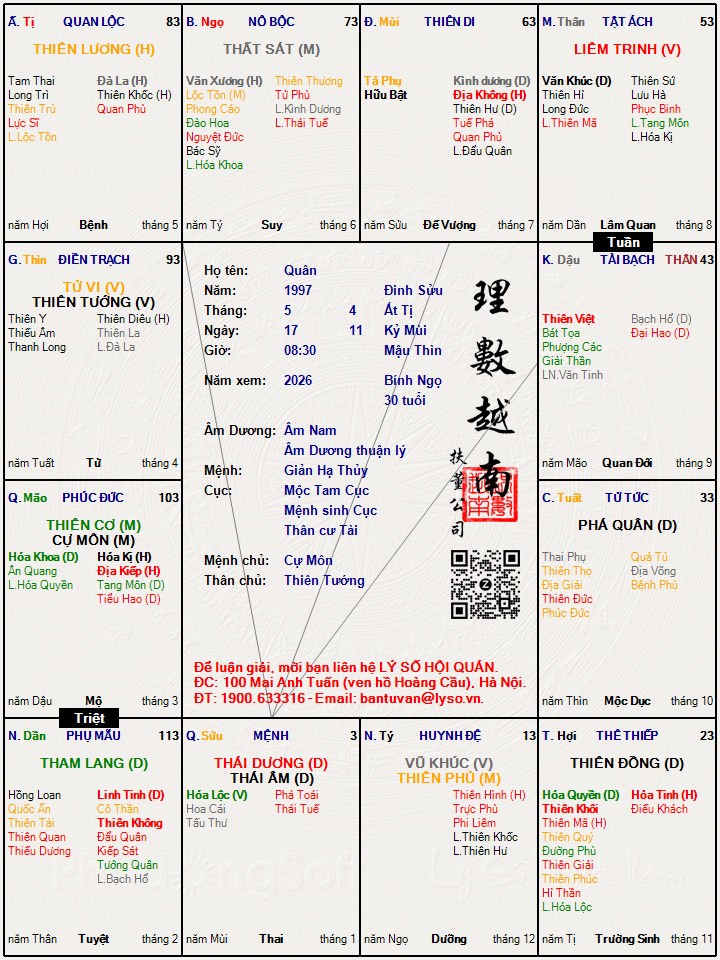 Ấ. Tị QUAN LỘC 83
THIÊN LƯƠNG (H)
Tam Thai Đà La (H)
Long Trì Thiên Khốc (H)
Thiên Trù Quan Phù
Lực Sĩ
L.Lộc Tồn
năm Hợi Bệnh tháng 5
B. Ngọ NÔ BỘC 73
THẤT SÁT (M)
Văn Xương (H) Thiên Thương
Lộc Tồn (M) Tử Phù
Phong Cáo L.Kình Dương
Đào Hoa L.Thái Tuế
Nguyệt Đức
Bác Sỹ
L.Hóa Khoa
năm Tý Suy tháng 6
Đ. Mùi THIÊN DI 63
Tả Phụ Kình dương (D)
Hữu Bật Địa Không (H)
Thiên Hư (D)
Tuế Phá
Quan Phủ
L.Đẩu Quân
năm Sửu Đế Vượng tháng 7
M. Thân TẬT ÁCH 53
LIÊM TRINH (V)
Văn Khúc (D) Thiên Sứ
Thiên Hỉ Lưu Hà
Long Đức Phục Binh
L.Thiên Mã L.Tang Môn
L.Hóa Kị
năm Dần Lâm Quan tháng 8
Tuần
G. Thìn ĐIỀN TRẠCH 93
TỬ VI (V)
THIÊN TƯỚNG (V)
Thiên Y Thiên Diêu (H)
Thiếu Âm Thiên La
Thanh Long L.Đà La
năm Tuất Tử tháng 4
Họ tên: Quân
Năm: 1997 Đinh Sửu
Tháng: 5 4 Ất Tị
Ngày: 17 11 Kỷ Mùi
Giờ: 08:30 Mậu Thìn
Năm xem: 2026 Bính Ngọ
30 tuổi
Âm Dương: Âm Nam
Âm Dương thuận lý
Mệnh: Giản Hạ Thủy
Cục: Mộc Tam Cục
Mệnh sinh Cục
Thân cư Tài
Mệnh chủ: Cự Môn
Thân chủ: Thiên Tướng
理數越南
扶董公司
Z
Để luận giải, mời bạn liên hệ LÝ SỐ HỘI QUÁN.
ĐC: 100 Mai Anh Tuấn (ven hồ Hoàng Cầu), Hà Nội.
ĐT: 1900.633316 - Email: bantuvan@lyso.vn.
K. Dậu TÀI BẠCH THÂN 43
Thiên Việt Bạch Hổ (D)
Bát Tọa Đại Hao (D)
Phượng Các
Giải Thần
LN.Văn Tinh
năm Mão Quan Đới tháng 9
Q. Mão PHÚC ĐỨC 103
THIÊN CƠ (M)
CỰ MÔN (M)
Hóa Khoa (D) Hóa Kị (H)
Ân Quang Địa Kiếp (H)
L.Hóa Quyền Tang Môn (D)
Tiểu Hao (D)
năm Dậu Mộ tháng 3
Triệt
C. Tuất TỬ TỨC 33
PHÁ QUÂN (D)
Thai Phụ Quả Tú
Thiên Thọ Địa Võng
Địa Giải Bệnh Phù
Thiên Đức
Phúc Đức
năm Thìn Mộc Dục tháng 10
N. Dần PHỤ MẪU 113
THAM LANG (D)
Hồng Loan Linh Tinh (D)
Quốc Ấn Cô Thần
Thiên Tài Thiên Không
Thiên Quan Đẩu Quân
Thiếu Dương Kiếp Sát
Tướng Quân
L.Bạch Hổ
năm Thân Tuyệt tháng 2
Q. Sửu MỆNH 3
THÁI DƯƠNG (D)
THÁI ÂM (D)
Hóa Lộc (V) Phá Toái
Hoa Cái Thái Tuế
Tấu Thư
năm Mùi Thai tháng 1
N. Tý HUYNH ĐỆ 13
VŨ KHÚC (V)
THIÊN PHỦ (M)
Thiên Hình (H)
Trực Phù
Phi Liêm
L.Thiên Khốc
L.Thiên Hư
năm Ngọ Dưỡng tháng 12
T. Hợi THÊ THIẾP 23
THIÊN ĐỒNG (D)
Hóa Quyền (D) Hỏa Tinh (H)
Thiên Khôi Điếu Khách
Thiên Mã (H)
Thiên Quý
Đường Phù
Thiên Giải
Thiên Phúc
Hỉ Thần
L.Hóa Lộc
năm Tị Trường Sinh tháng 11